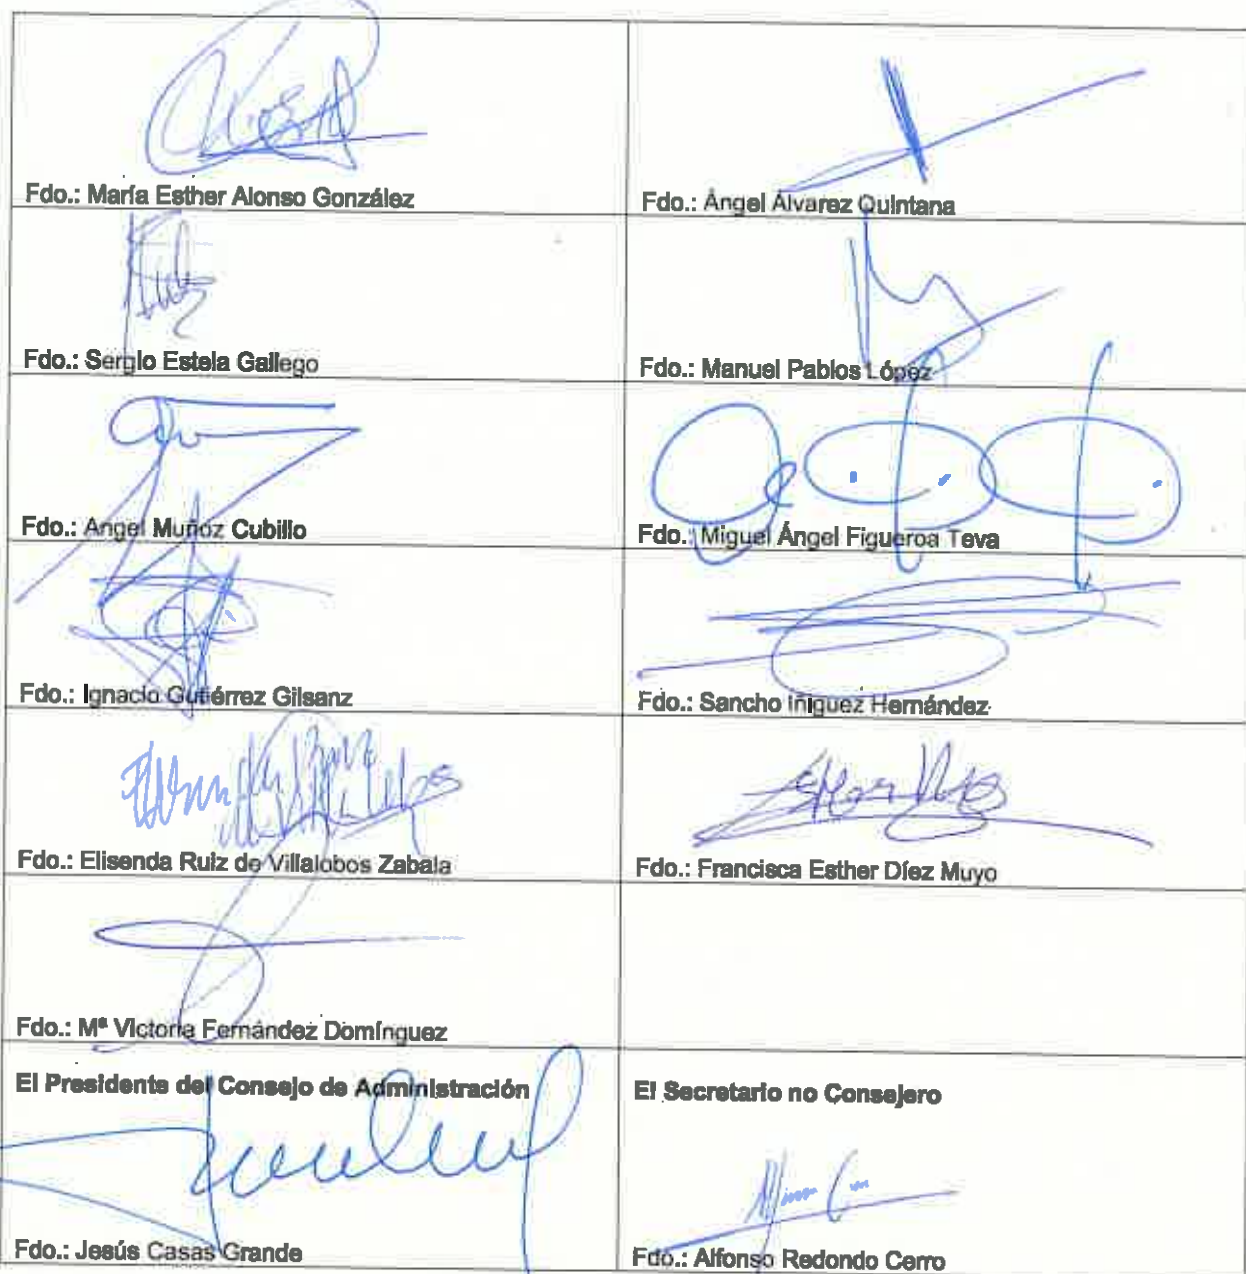 Fdo.: María Esther Alonso González
Fdo.: Ángel Álvarez Quintana
Fdo.: Sergio Estela Gallego
Fdo.: Manuel Pablos López
Fdo.: Angel Muñoz Cubillo
Fdo.: Miguel Ángel Figueroa Teva
Fdo.: Ignacio Gutiérrez Gilsanz
Fdo.: Sancho Iñiguez Hernández
Fdo.: Elisenda Ruiz de Villalobos Zabala
Fdo.: Francisca Esther Díez Muyo
Fdo.: Mª Victoria Fernández Domínguez
El Presidente del Consejo de Administración
Fdo.: Jesús Casas Grande
El Secretario no Consejero
Fdo.: Alfonso Redondo Cerro